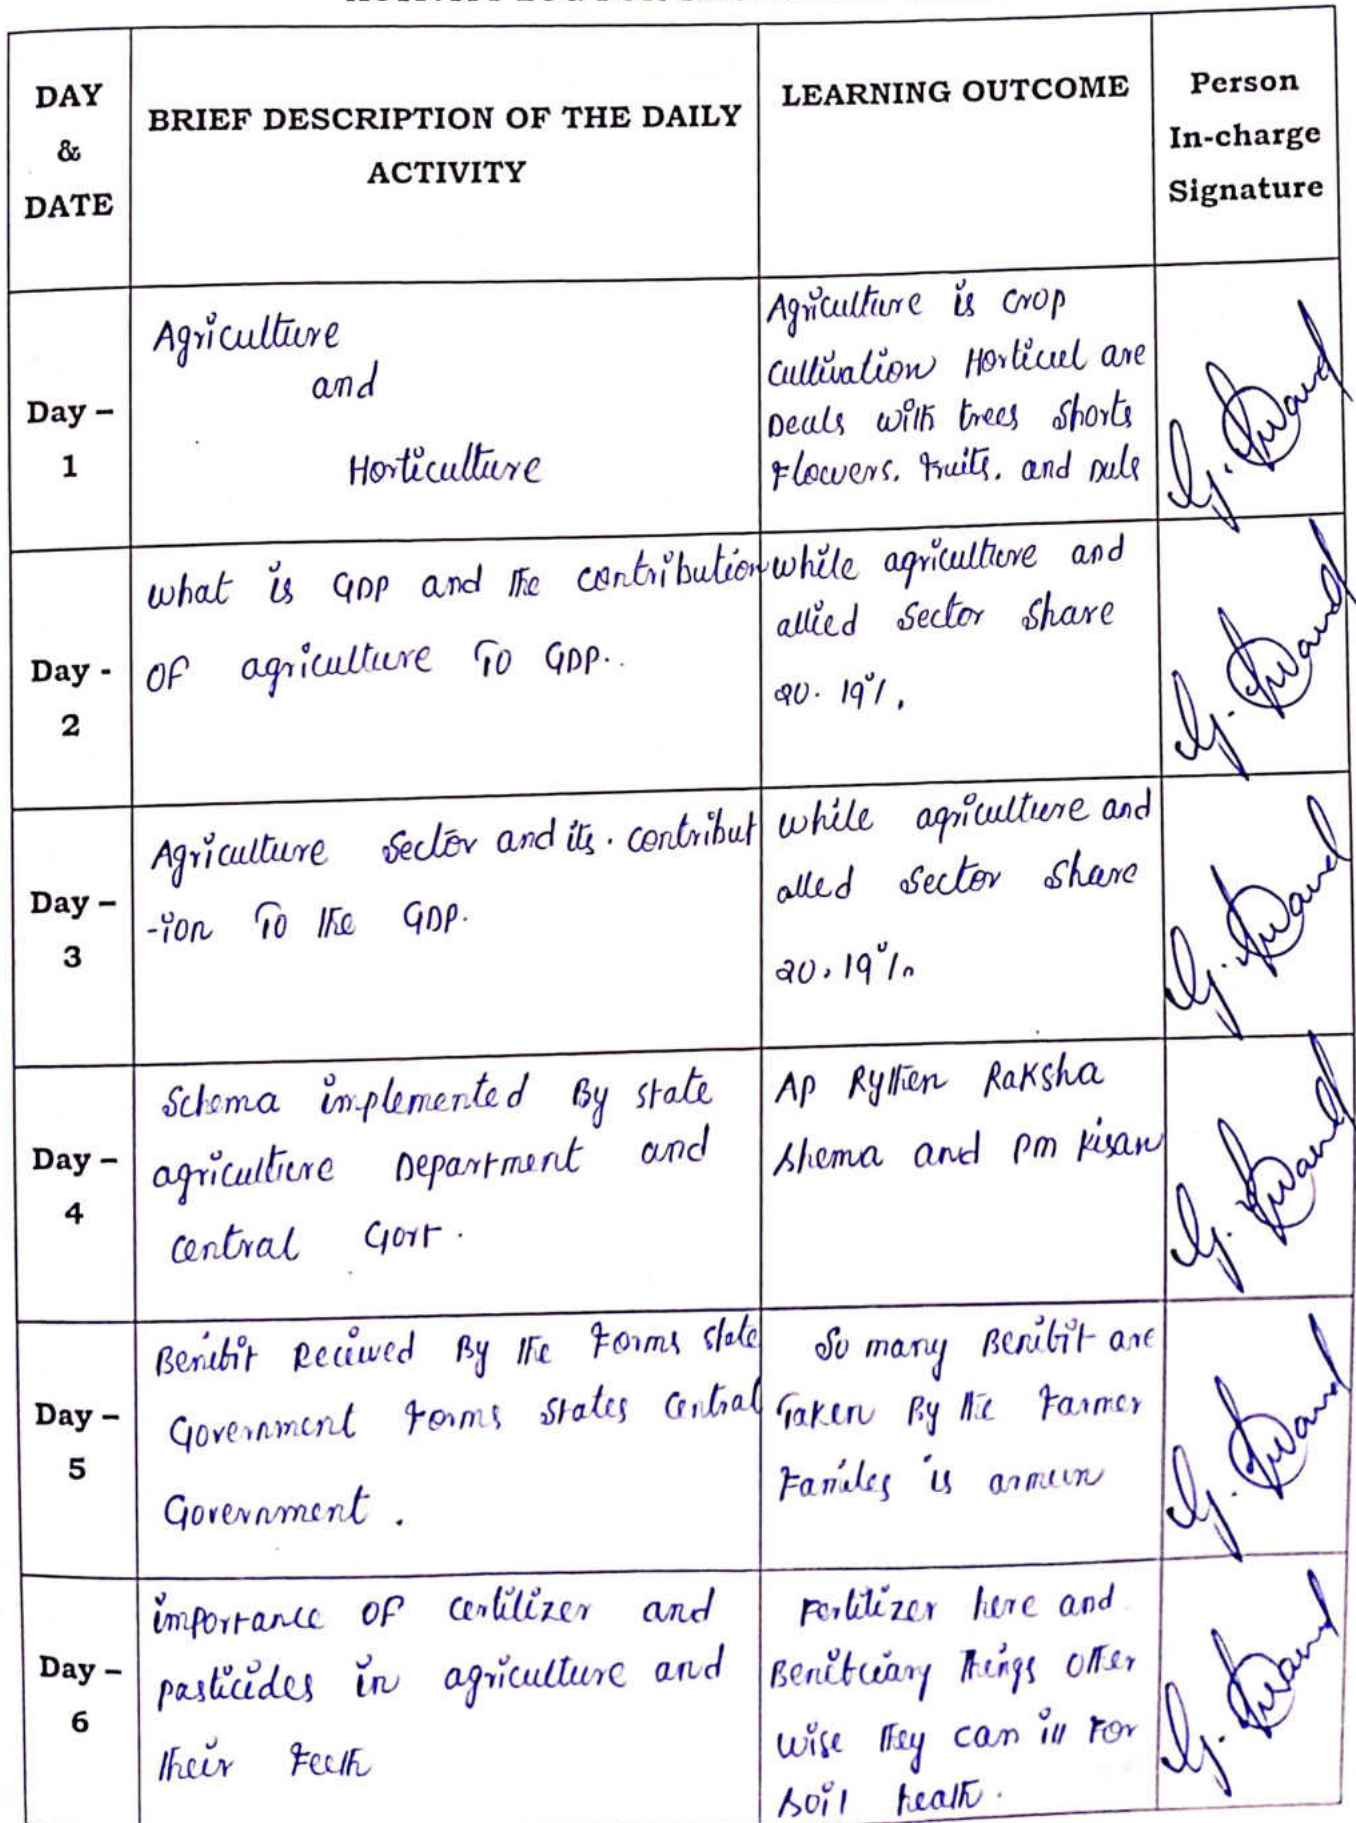 DAY
&
DATE
BRIEF DESCRIPTION OF THE DAILY
ACTIVITY
LEARNING OUTCOME
Person
In-charge
Signature
Day –
1
Agriculture
and
Horticulture
Agriculture is crop
Cultivation Horticul are
Deals with trees Shorts
Flowers. Fruits. and
Day -
2
what is GDP and the contribution
OF agriculture To GDP..
while agriculture and
allied Sector Share
20.19%.
Day –
3
Agriculture Sector and its. contribut
-ion To the GDP.
while agriculture and
alled Sector Share
20.19%
Day –
4
Schema implemented By state
agriculture Department and
central Govt.
AP Rythen Raksha
shema and pm kisan
Day –
5
Benibit Recived By the Forms state
Government Forms States Central
Government.
So many Benibit are
Taken By the Farmer
Familes is
Day –
6
importance OF certilizer and
pasticides in agriculture and
their
Fertilizer here and
Benibciary Things other
wise they can ill For
soil healh.